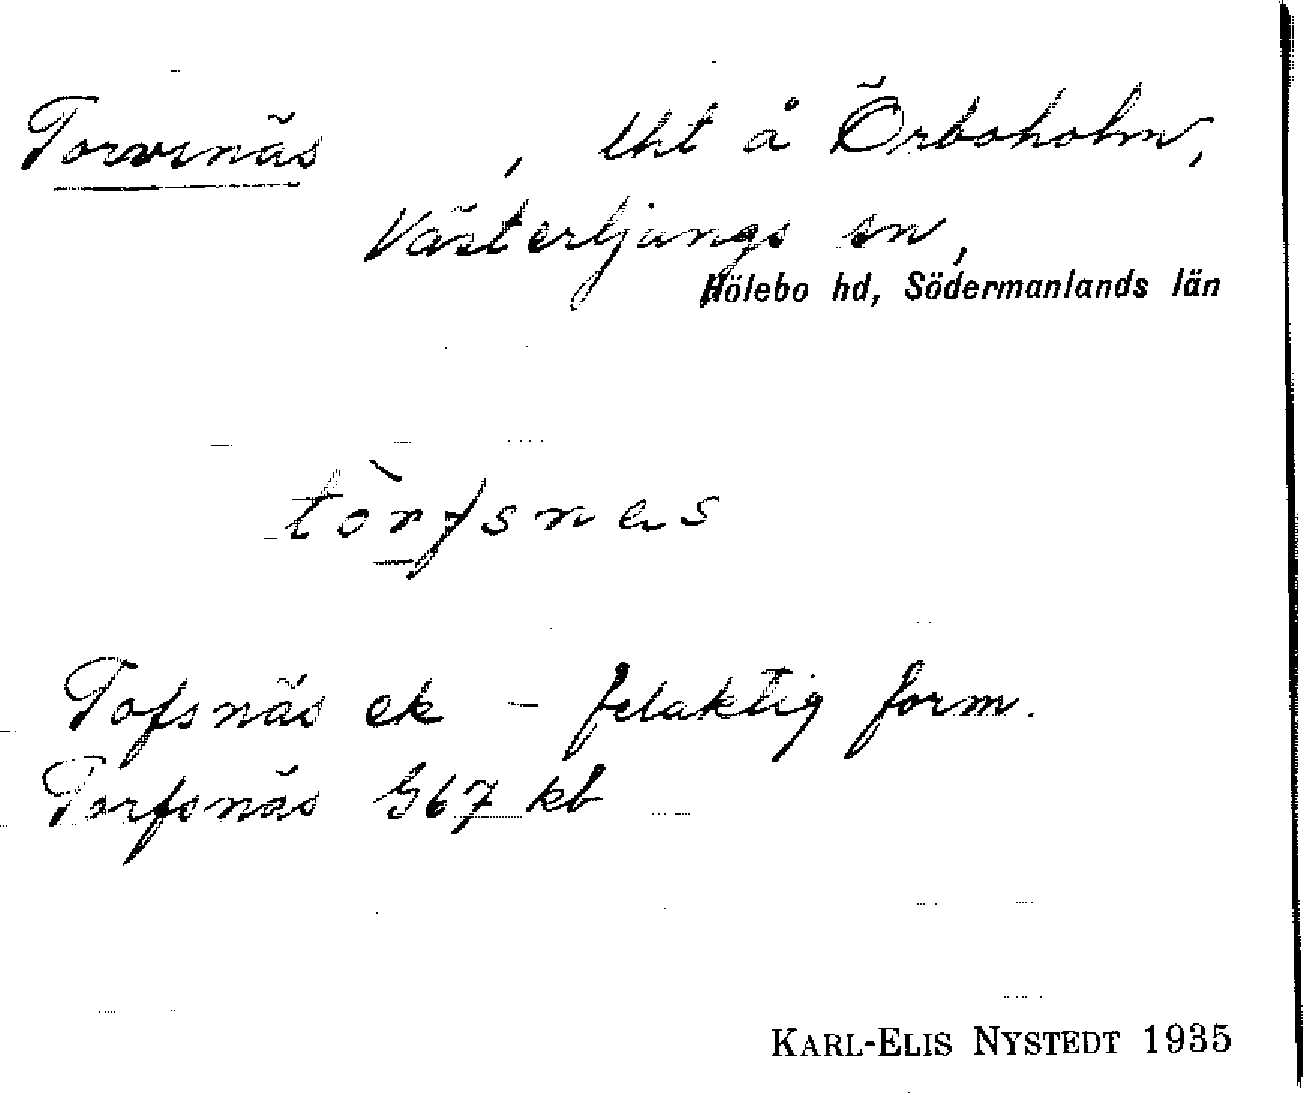 Torvsnäs , lht å Örboholm,
Västerljungs sn,
Hölebo hd, Södermanlands län
tòrfsnes
Tofsnäs ek - felaktig form.
Torfsnäs G67 kb
KARL-ELIS NYSTEDT 1935